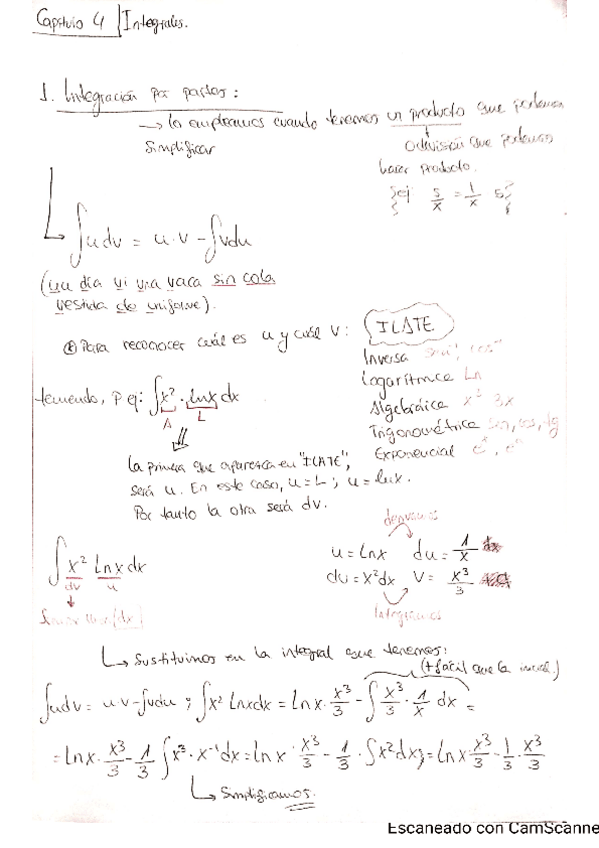 Capítulo 4 | Integrales.
1. Integración por partes:
→ la empleamos cuando tenemos un producto que podemos
simplificar
o división que podemos
hacer producto.
{ej 5/x = 1/x · 5}
∫u dv = u·v - ∫v du
(un día vi una vaca sin cola
vestida de uniforme).
Para reconocer cuál es u y cuál v: ILATE
Inversa sen⁻¹, cos⁻¹
Logarítmica Ln
Algebráica x³ 3x
Trigonométrica sen, cos, tg
Exponencial
teniendo, p ej: ∫x² · lnx dx
A L
La primera que aparezca en "ILATE",
será u. En este caso, u = L; u = lnx.
Por tanto la otra será dv.
derivamos
∫x² Lnx dx
dv u
u = Lnx du = 1/x dx
dv = x²dx v = x³/3
Integramos
↳ Sustituimos en la integral que tenemos:
(+ fácil que la inicial.)
∫u dv = u v - ∫v du ; ∫x² Lnx dx = Lnx · x³/3 - ∫ x³/3 · 1/x dx =
= Lnx · x³/3 - 1/3 ∫x³ · x⁻¹ dx = lnx · x³/3 - 1/3 · ∫x² dx; = Lnx · x³/3 - 1/3 · x³/3
↳ Simplificamos.
Escaneado con CamScanne